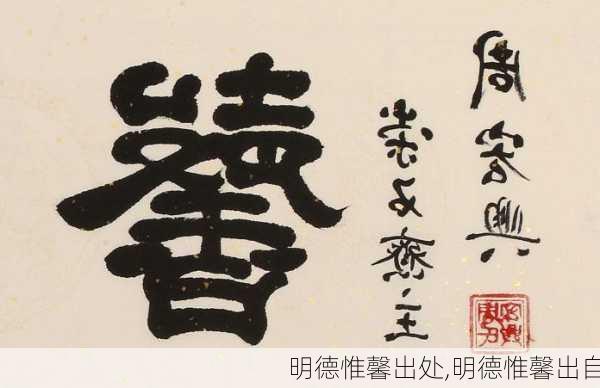 馨
齋主
周興
明德惟馨出处,明德惟馨出自